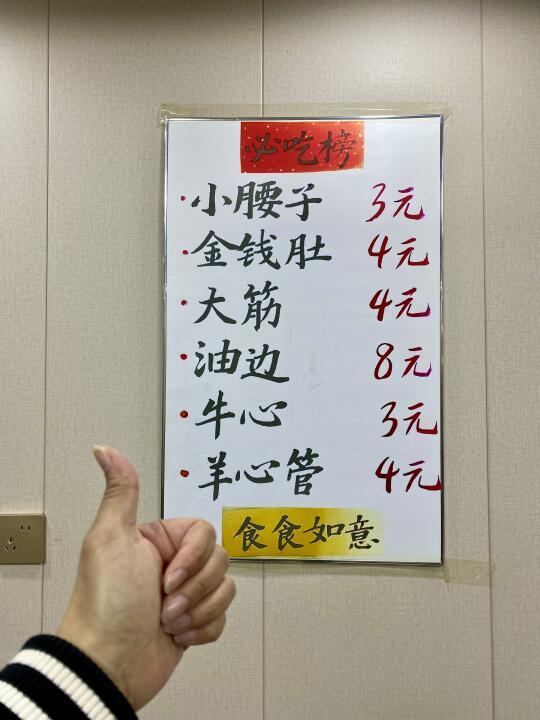 必吃榜
·小腰子 3元
·金钱肚 4元
·大筋 4元
·油边 8元
·牛心 3元
·羊心管 4元
食食如意